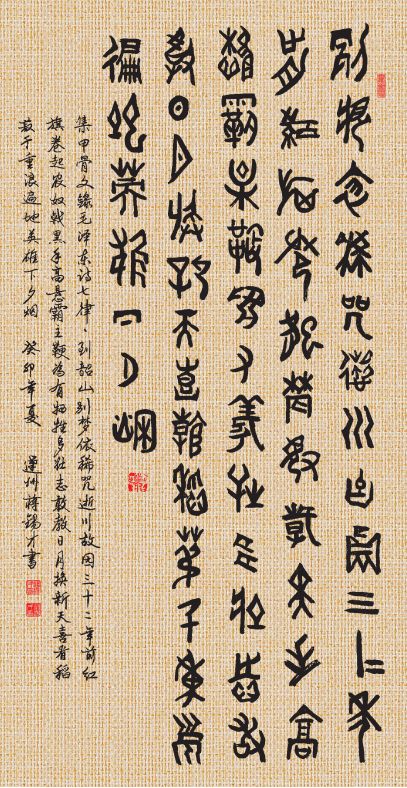 别梦依稀咒逝川故园三十二年
前红旗卷起农奴戟黑手高
悬霸主鞭为有牺牲多壮志敢
教日月换新天喜看稻菽千重浪
遍地英雄下夕烟
集甲骨文錄毛泽东诗七律、到韶山别梦依稀咒逝川故园三十二年前红
旗卷起农奴戟黑手高悬霸主鞭为有牺牲多壮志敢教日月换新天喜看稻
菽千重浪遍地英雄下夕烟 癸卯年夏 州蒋锡才書